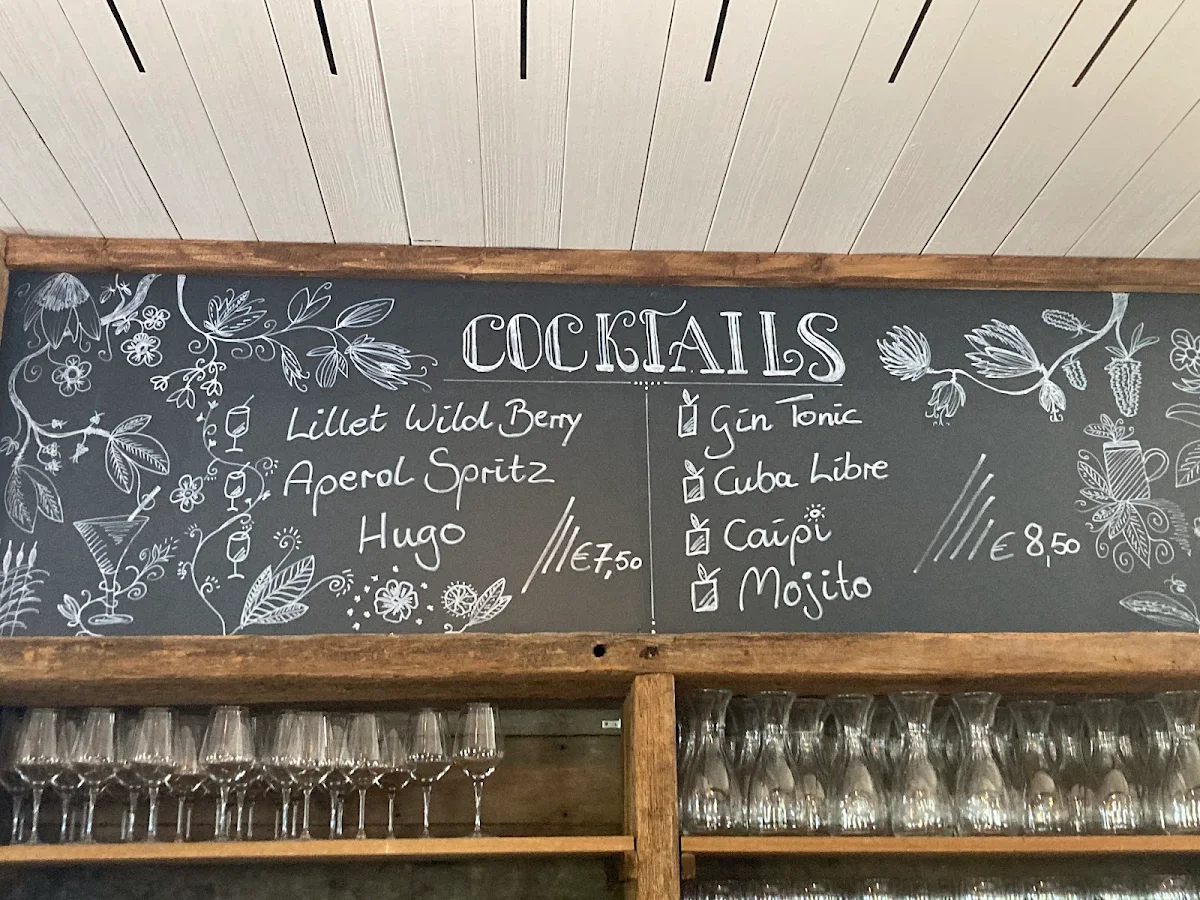 COCKTAILS
Lillet Wild Berry
Aperol Spritz
Hugo
€7,50
Gin Tonic
Cuba Libre
Caipi
Mojito
€8,50